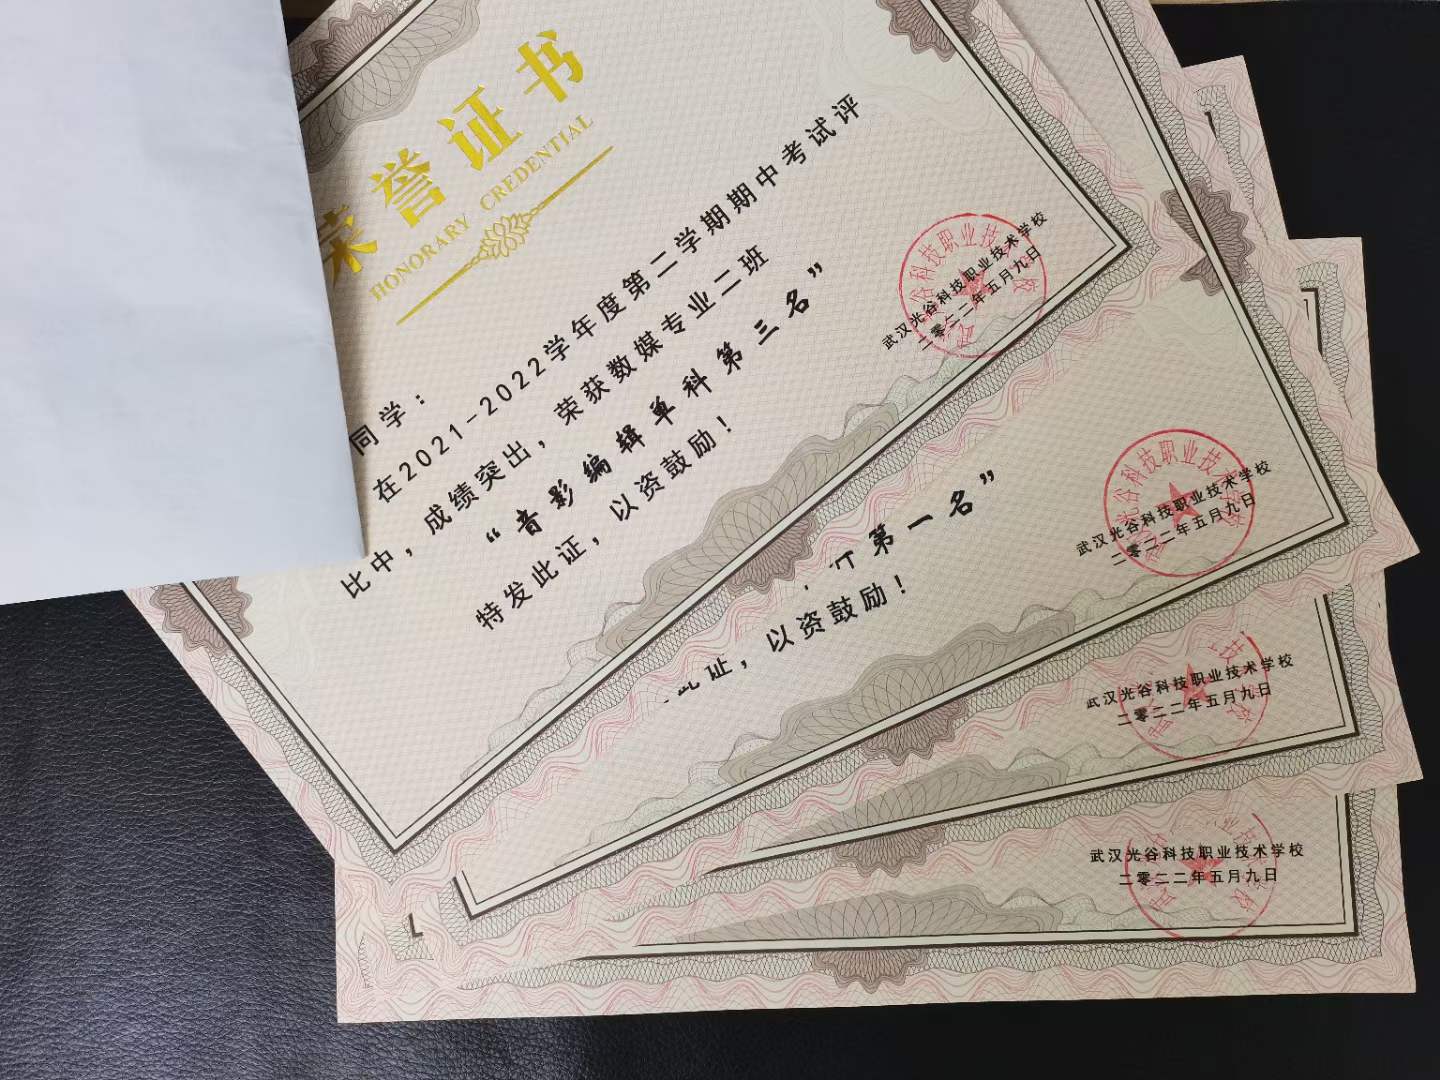 荣誉证书
HONORARY CREDENTIAL
同学：
在2021-2022学年度第二学期期中考试评
比中，成绩突出，荣获数媒专业二班
“音影编辑单科第三名”
特发此证，以资鼓励！
武汉光谷科技职业技术学校
二零二二年五月九日
第一名”
此证，以资鼓励！
武汉光谷科技职业技术学校
二零二二年五月九日
武汉光谷科技职业技术学校
二零二二年五月九日
武汉光谷科技职业技术学校
二零二二年五月九日